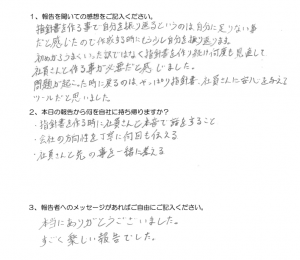 1、報告を聞いての感想をご記入ください。
指針書を作る事で自分を振り返るというのは自分に足りない事
だと感じたので作成する時にもう少し自分を振り返ります。
初めからうまくいった訳ではなく指針書を作り続け何度も見直して
社員さんと作る事が必要だと感じました。
問題が起こった時に戻るのは、やっぱり指針書、社員さんに安心を与える
ツールだと思いました。
2、本日の報告から何を自社に持ち帰りますか？
・指針書を作る時に社員さんと本音で話をすること
・会社の方向性を丁寧に何回も伝える
・社員さんと先の事を一緒に考える
3、報告者へのメッセージがあればご自由にご記入ください。
本当にありがとうございました。
すごく楽しい報告でした。